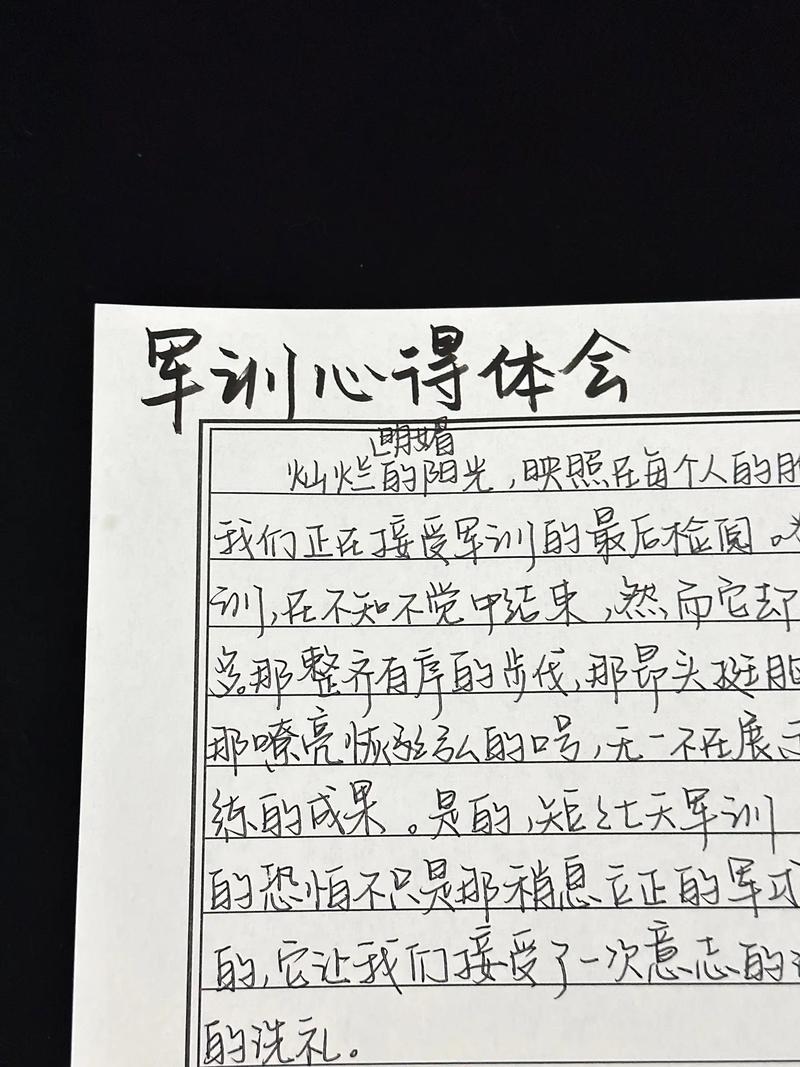 军训心得体会
明媚
灿烂的阳光,映照在每个人的
我们正在接受军训的最后检阅。
训,在不知不觉中结束,然而它却
多。那整齐有序的步伐,那昂头挺胸
那嘹亮恢弘的口号,无一不在展示
练的成果。是的,短短七天军训
的恐怕不只是那稍息立正的军式
的,它让我们接受了一次意志的
的洗礼。